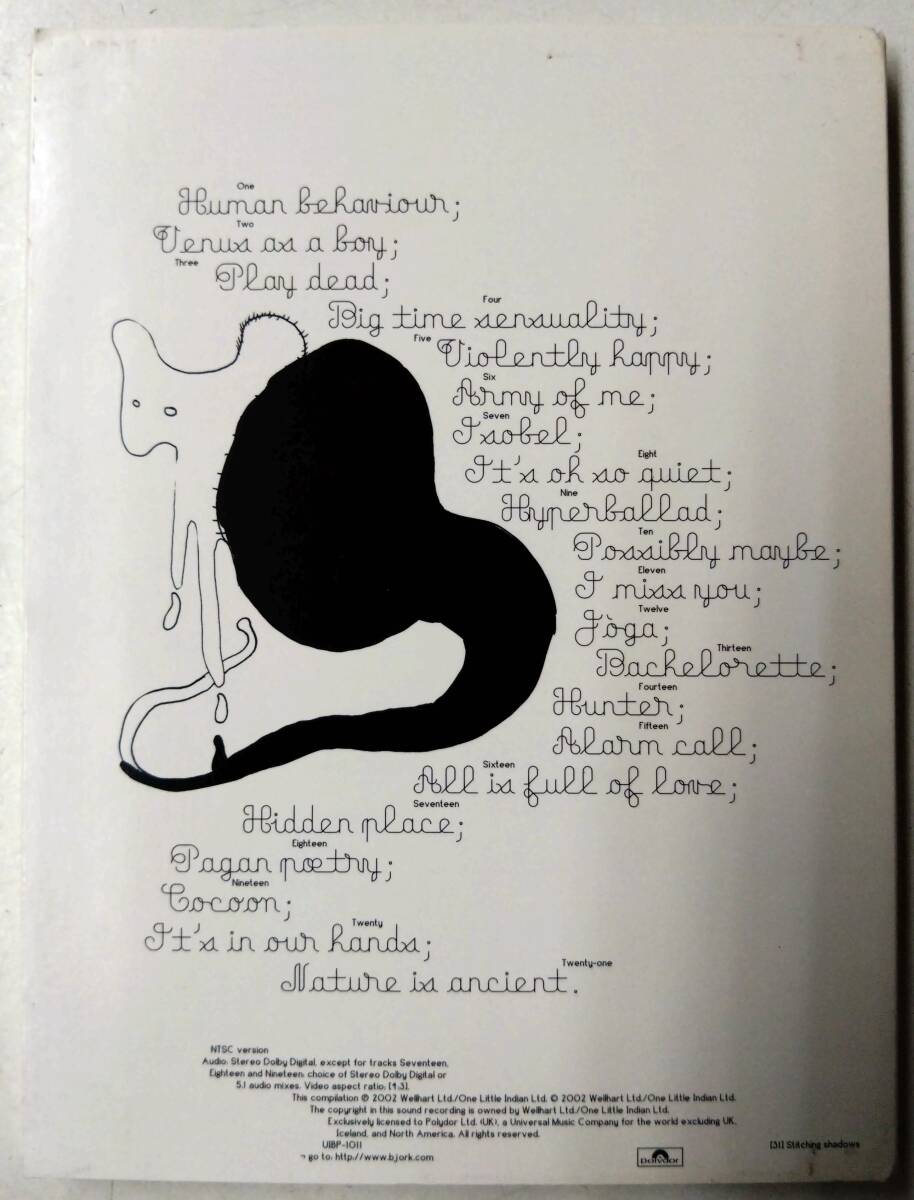 One
Human behaviour;
Two
Venus as a boy;
Three
Play dead;
Four
Big time sensuality;
Five
Violently happy;
Six
Army of me;
Seven
Isobel;
Eight
It's oh so quiet;
Nine
Hyperballad;
Ten
Possibly maybe;
Eleven
I miss you;
Twelve
Jòga;
Thirteen
Bachelorette;
Fourteen
Hunter;
Fifteen
Alarm call;
Sixteen
All is full of love;
Seventeen
Hidden place;
Eighteen
Pagan pœtry;
Nineteen
Cocoon;
Twenty
It's in our hands;
Twenty-one
Nature is ancient.
NTSC version
Audio: Stereo Dolby Digital, except for tracks Seventeen,
Eighteen and Nineteen: choice of Stereo Dolby Digital or
5.1 audio mixes. Video aspect ratio: [4:3].
This compilation ℗ 2002 Wellhart Ltd./One Little Indian Ltd. © 2002 Wellhart Ltd./One Little Indian Ltd.
The copyright in this sound recording is owned by Wellhart Ltd./One Little Indian Ltd.
Exclusively licensed to Polydor Ltd. (UK), a Universal Music Company for the world excluding UK,
Iceland, and North America. All rights reserved.
UIBP-1011
go to: http://www.bjork.com
Polydor
[31] Stitching shadows